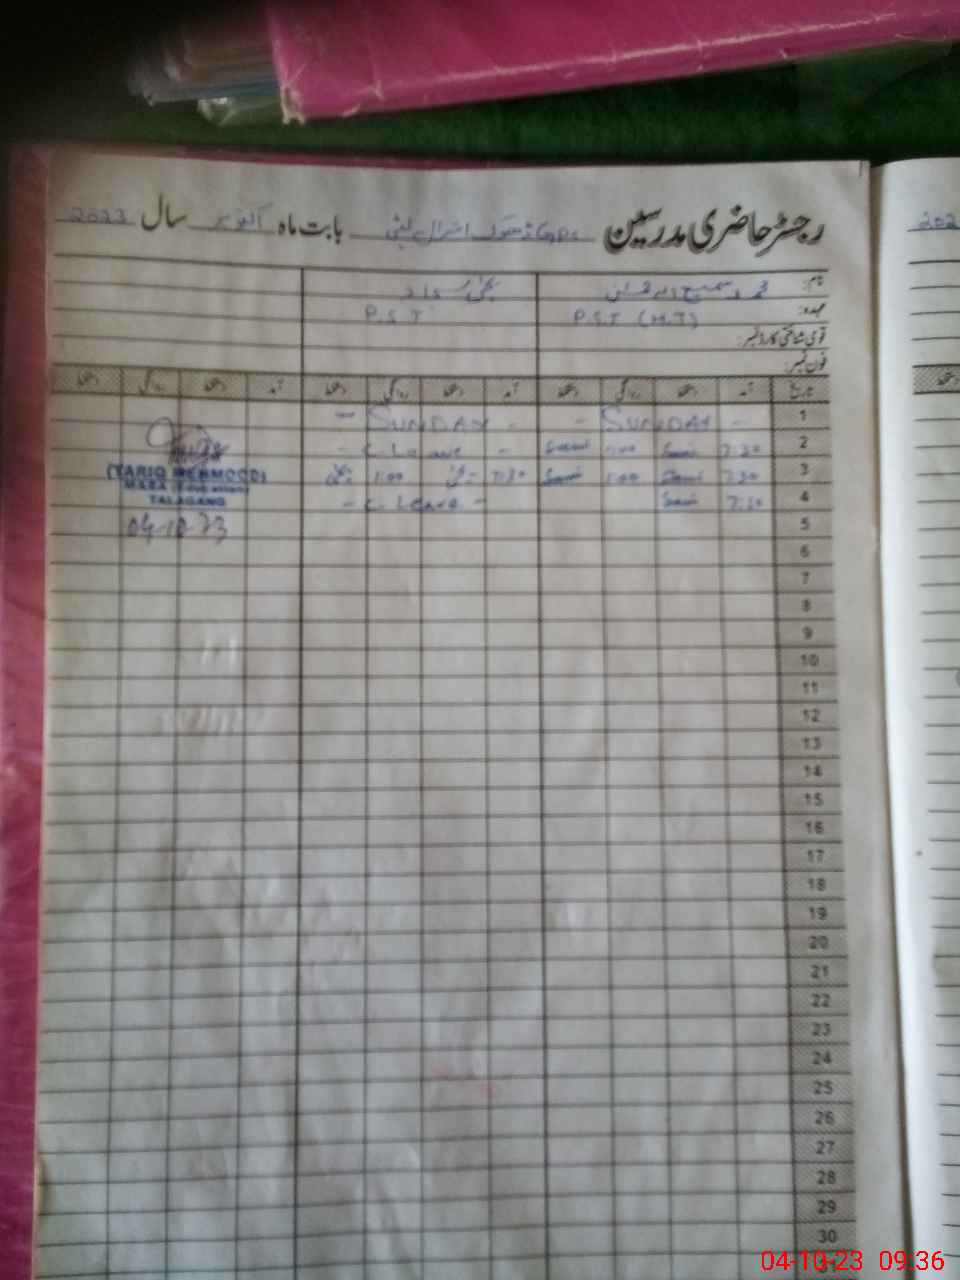 رجسٹر حاضری مدرسین GPS ڈھوک بابت ماہ اکتوبر سال 2023
نام: محمد سمیع
عہدہ: P.S.T (H.T) P.S.T
قومی شناختی کارڈ نمبر:
فون نمبر:
تاریخ آمد دستخط روانگی دستخط آمد دستخط روانگی دستخط آمد دستخط روانگی دستخط
1 - SUNDAY - - SUNDAY -
2 7:30 Sami 1:00 Sami - C. Leave -
3 7:30 Sami 1:00 Sami 7:30 1:00
4 7:30 Sami - C. Leave -
(TARIQ MEHMOOD)
TALAGANG
04-10-23
5
6
7
8
9
10
11
12
13
14
15
16
17
18
19
20
21
22
23
24
25
26
27
28
29
30
31
202
دستخط
04-10-23 09:36